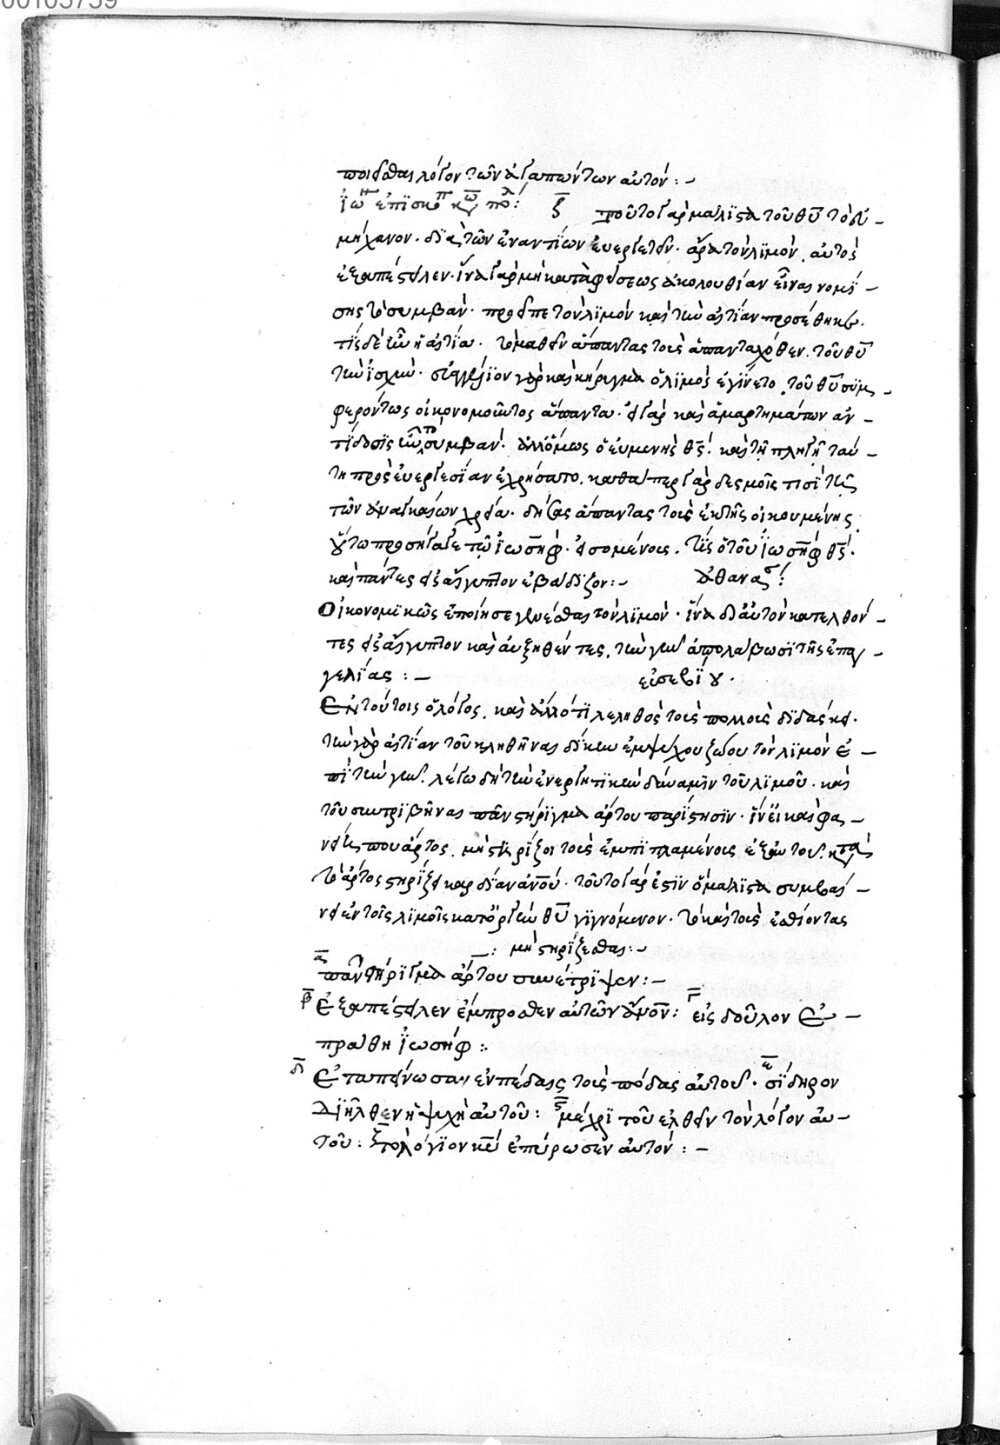 00105739
ποιεῖσθαι λόγον τῶν ἀγαπώντων αὐτόν :-
ἰω ἐπισκ κω πολ : ζ τοῦτο γὰρ μάλιστα τοῦ θῦ τὸ εὐ-
μήχανον· διὰ τῶν ἐναντίων ἐυεργετεῖν· ἆρα τὸν λιμὸν, αὐτὸς
ἐξαπέστειλεν· ἵνα γὰρ μὴ κατὰ φύσεως ἀκολουθίαν εἶναι νομί-
σης τὸ συμβὰν· προσεῖπε τὸν λιμὸν καὶ τὴν αἰτίαν προσέθηκε.
τίς δὲ ἦν ἡ αἰτία· τὸ μαθεῖν ἅπαντας τοὺς ἁπανταχόθεν, τοῦ θῦ
τὴν ἰσχύν· εὐαγγέλιον γὰρ καὶ κήρυγμα ὁ λιμὸς ἐγίνετο, τοῦ θῦ συμ-
φερόντως οἰκονομοῦντος ἅπαντα· εἰ γὰρ καὶ ἁμαρτημάτων ἀν-
τίδοσις ἦν τὸ συμβάν· ἀλλ' ὅμως ὁ εὐμενὴς θς· καὶ τῇ πληγῇ ταύ-
τη πρὸς ἐυεργεσίαν ἐχρήσατο, καθάπερ γὰρ δεσμοῖς τισὶ τῇ
τῶν ἀναγκαίων χρεία· δήσας ἅπαντας τοὺς ἐκ τῆς οἰκουμένης
οὕτω προσήγαγε τῷ ἰωσὴφ· εἰσομένους, τίς ὁ τοῦ ἰωσὴφ θς·
καὶ πάντες εἰς αἴγυπτον ἐβάδιζον :- ἀθανασ :
Οἰκονομικῶς ἐποίησε γενέσθαι τὸν λιμὸν· ἵνα δι' αὐτὸν κατελθόν-
τες εἰς αἴγυπτον καὶ αὐξηθέντες, τὴν γῆν ἀπολάβωσι τῆς ἐπαγ-
γελίας :- εὐσεβίου·
Ἐν τούτοις ὁ λόγος, καὶ ἄλλό τι λεληθὸς τοὺς πολλοὺς διδάσκει·
τὴν γὰρ αἰτίαν τοῦ κληθῆναι δίκην ἐμψύχου ζώου τὸν λιμὸν ἐ-
πὶ τὴν γῆν· λέγω δὴ τὴν ἐνεργητικὴν δύναμιν τοῦ λιμοῦ· καὶ
τοῦ συντριβῆναι πᾶν στήριγμα ἄρτου παρίστησιν· ἵν' εἰ καὶ φα-
νείη που ἄρτος, μὴ στηρίζοι τοὺς ἐμπιπλαμένους ἐξ αὐτοῦ· κατὰ
τὸ ἄρτος στηρίζει καρδίαν ἀνου· τοῦτο γάρ ἐστιν ὁ μάλιστα συμβαί-
νει ἐν τοῖς λιμοῖς κατ' ὀργὴν θῦ γιγνόμενον· τὸ καὶ τοὺς ἐσθίοντας
μὴ στηρίζεσθαι :-
α πᾶν στήριγμα ἄρτου συνέτριψεν :-
β Ἐξαπέστειλεν ἔμπροσθεν αὐτῶν ἄνον : γ εἰς δοῦλον ἐ-
πράθη ἰωσήφ :
δ Ἐταπείνωσαν ἐν πέδαις τοὺς πόδας αὐτοῦ· ε σίδηρον
διῆλθεν ἡ ψυχὴ αὐτοῦ : ϛ μέχρι τοῦ ἐλθεῖν τὸν λόγον αὐ-
τοῦ : ζ τὸ λόγιον κυ ἐπύρωσεν αὐτόν :-